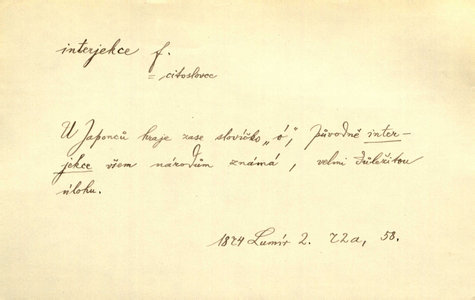 interjekce f.
= citoslovce
U Japonců hraje zase slovíčko „ó“, původně inter-
jekce všem národům známá, velmi důležitou
úlohu.
1874 Lumír 2. 72a, 58.